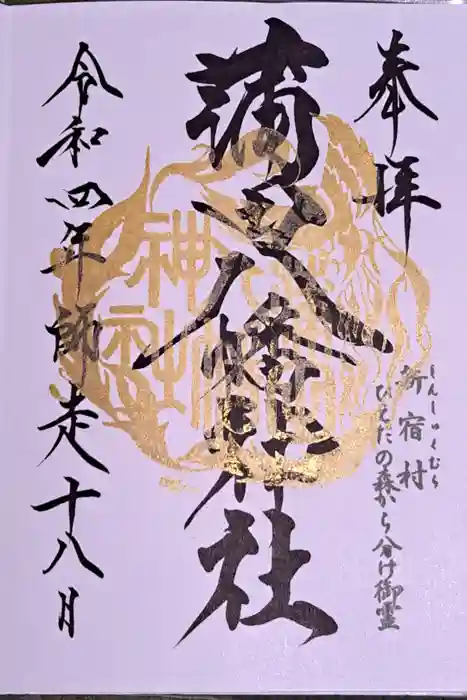 奉拝
しんしゅくむら
新宿村
ひえたの森から分け御霊
蒲田八幡神社
神社
令和四年師走十八日